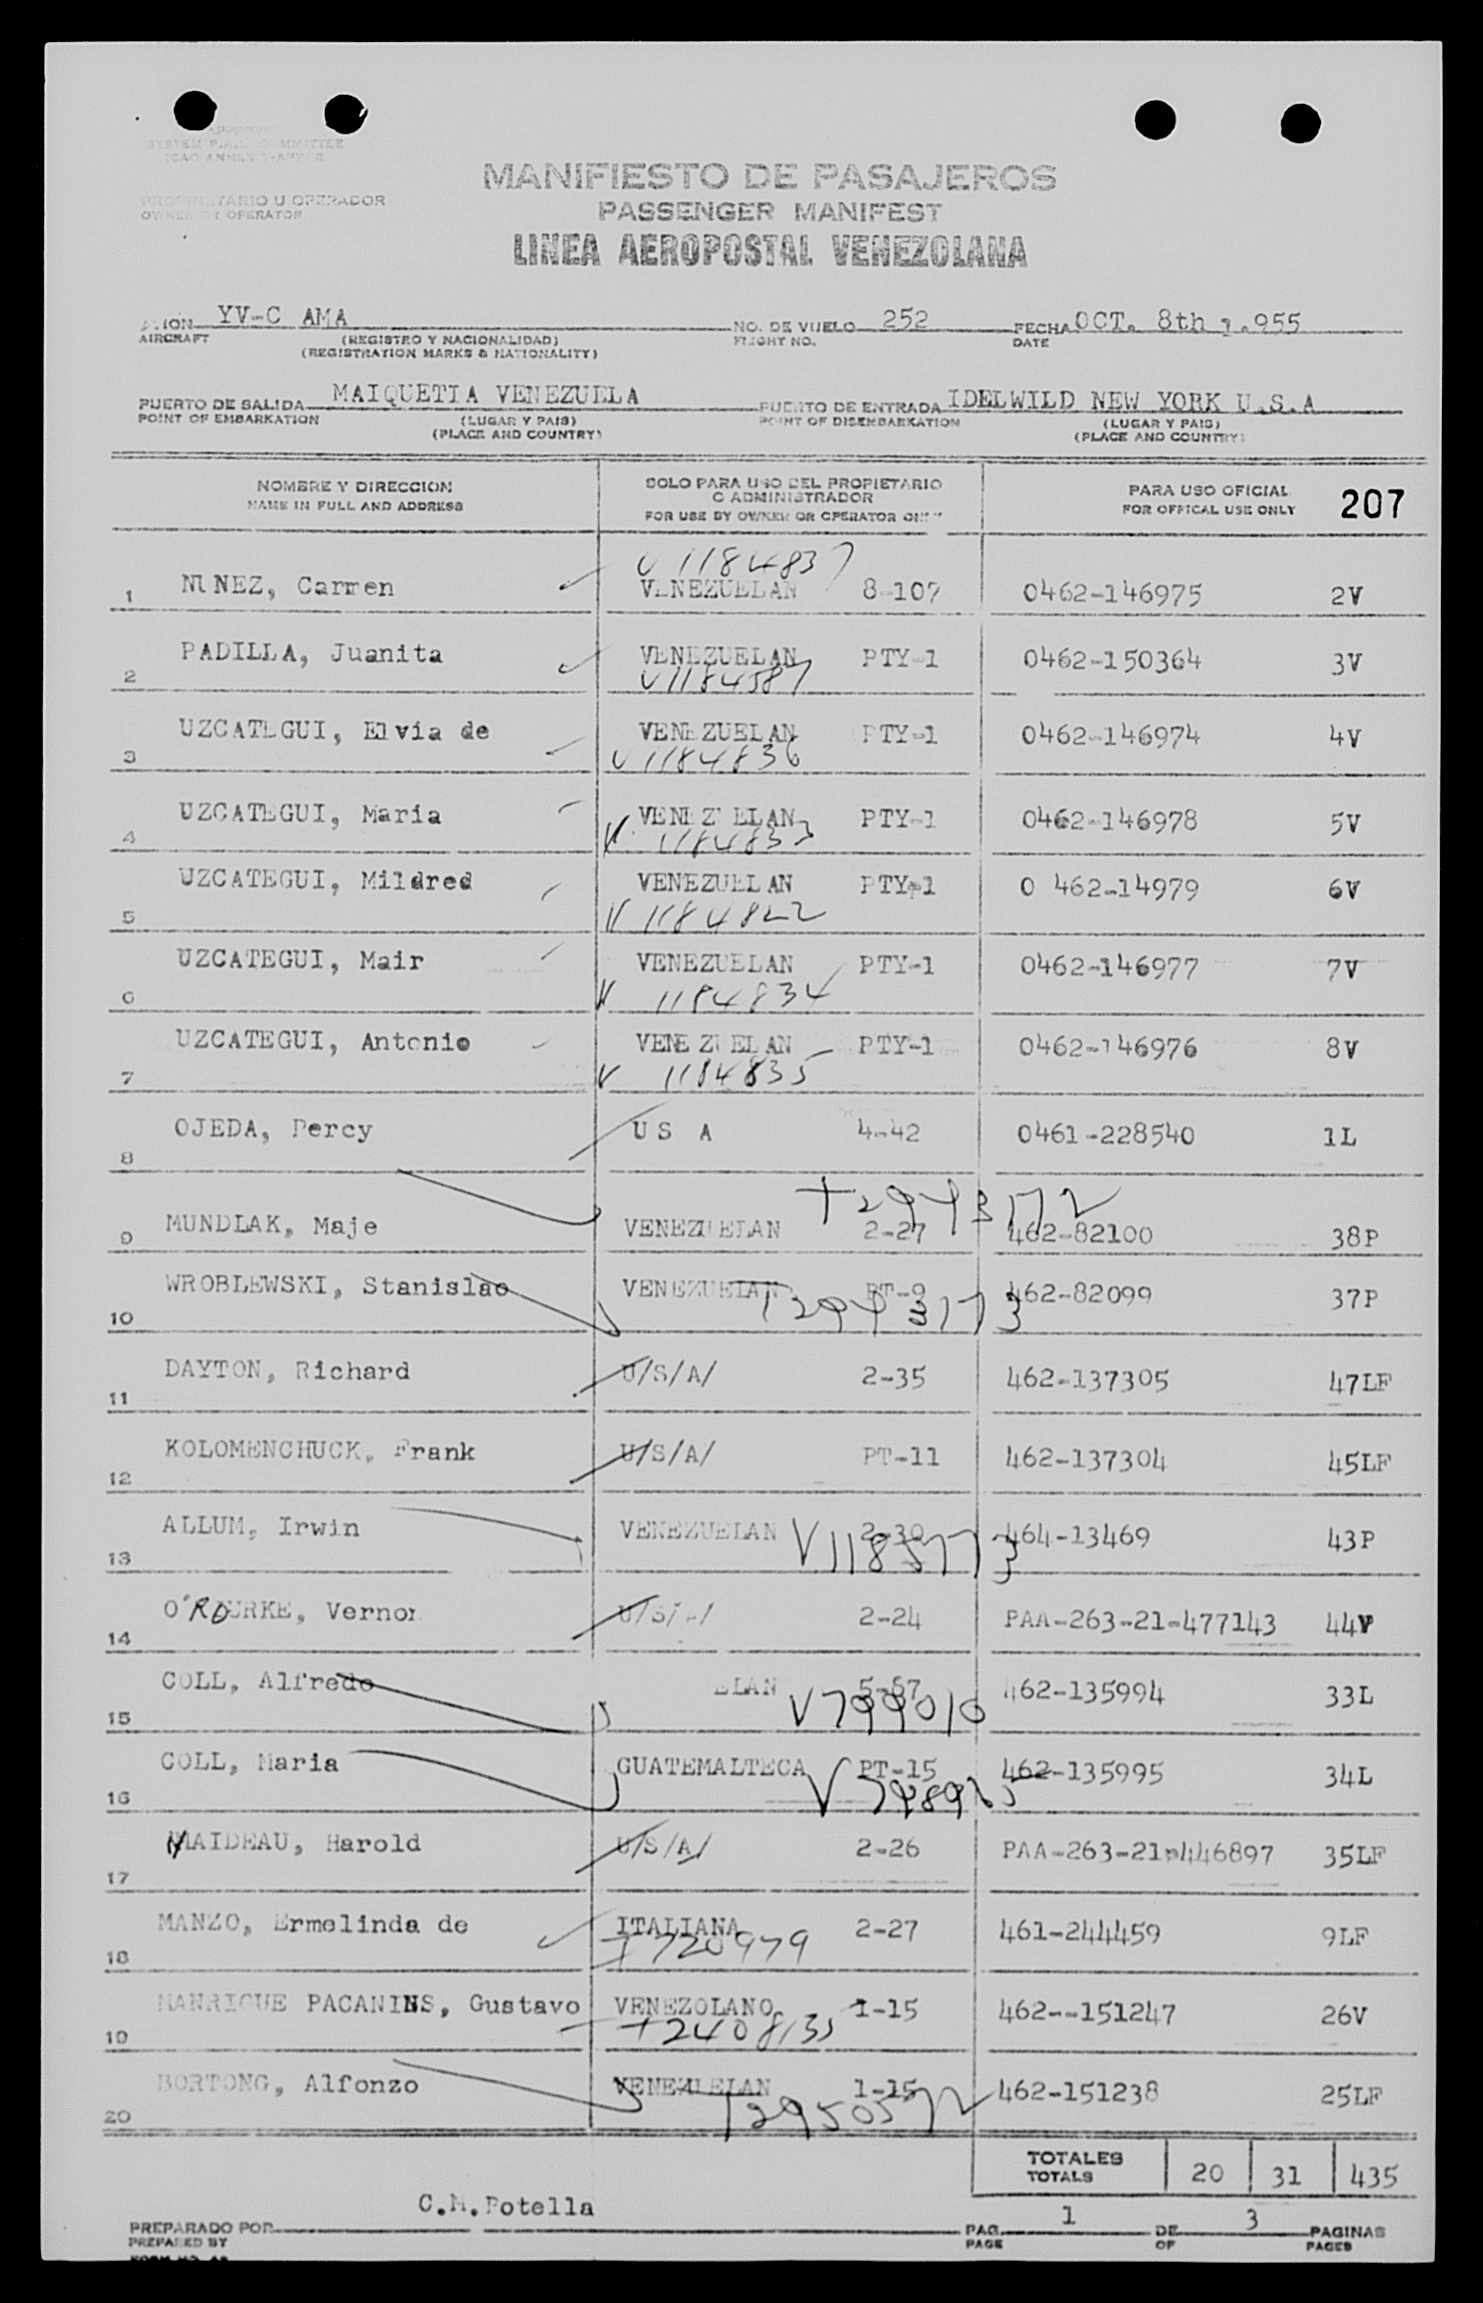 SYSTEM
PROPIETARIO U OPERADOR
OWNER OR OPERATOR
MANIFIESTO DE PASAJEROS
PASSENGER MANIFEST
LINEA AEROPOSTAL VENEZOLANA
AVION YV-C AMA NO. DE VUELO 252 FECHA OCT. 8th 1.955
AIRCRAFT (REGISTRO Y NACIONALIDAD) FLIGHT NO. DATE
(REGISTRATION MARKS & NATIONALITY)
PUERTO DE SALIDA MAIQUETIA VENEZUELA PUERTO DE ENTRADA IDELWILD NEW YORK U.S.A
POINT OF EMBARKATION (LUGAR Y PAIS) POINT OF DISEMBARKATION (LUGAR Y PAIS)
(PLACE AND COUNTRY) (PLACE AND COUNTRY)
NOMBRE Y DIRECCION SOLO PARA USO DEL PROPIETARIO PARA USO OFICIAL 207
O ADMINISTRADOR
NAME IN FULL AND ADDRESS FOR USE BY OWNER OR OPERATOR ONLY FOR OFFICAL USE ONLY
V 1184837
1 NUNEZ, Carmen VENEZUELAN 8-107 0462-146975 2V
2 PADILLA, Juanita VENEZUELAN PTY-1 0462-150364 3V
V1184587
3 UZCATEGUI, Elvia de VENEZUELAN PTY-1 0462-146974 4V
V 1184836
4 UZCATEGUI, Maria VENEZUELAN PTY-1 0462-146978 5V
V 1184833
5 UZCATEGUI, Mildred VENEZUELAN PTY-1 0 462-14979 6V
V 1184822
6 UZCATEGUI, Mair VENEZUELAN PTY-1 0462-146977 7V
V 1184834
7 UZCATEGUI, Antonio VENEZUELAN PTY-1 0462-146976 8V
V 1184835
8 OJEDA, Percy U S A 4-42 0461-228540 1L
T2943172
9 MUNDLAK, Maje VENEZUELAN 2-27 462-82100 38P
10 WROBLEWSKI, Stanislao VENEZUELAN PT-9 462-82099 37P
T2943173
11 DAYTON, Richard U/S/A/ 2-35 462-137305 47LF
12 KOLOMENCHUCK, Frank U/S/A/ PT-11 462-137304 45LF
13 ALLUM, Irwin VENEZUELAN 2-30 464-13469 43P
V1185773
14 O'ROURKE, Vernon U/S/A/ 2-24 PAA-263-21-477143 44P
15 COLL, Alfredo ELAN 5-67 462-135994 33L
V799010
16 COLL, Maria GUATEMALTECA PT-15 462-135995 34L
17 NAIDEAU, Harold U/S/A/ 2-26 PAA-263-21-446897 35LF
18 MANZO, Ermelinda de ITALIANA 2-27 461-244459 9LF
T720979
19 MANRIQUE PACANINS, Gustavo VENEZOLANO 1-15 462--151247 26V
T2408135
20 BORTONG, Alfonzo VENEZUELAN 1-15 462-151238 25LF
T2950572
TOTALES 20 31 435
TOTALS
C.M.Potella
PREPARADO POR PAG. 1 DE 3 PAGINAS
PREPARED BY PAGE OF PAGES